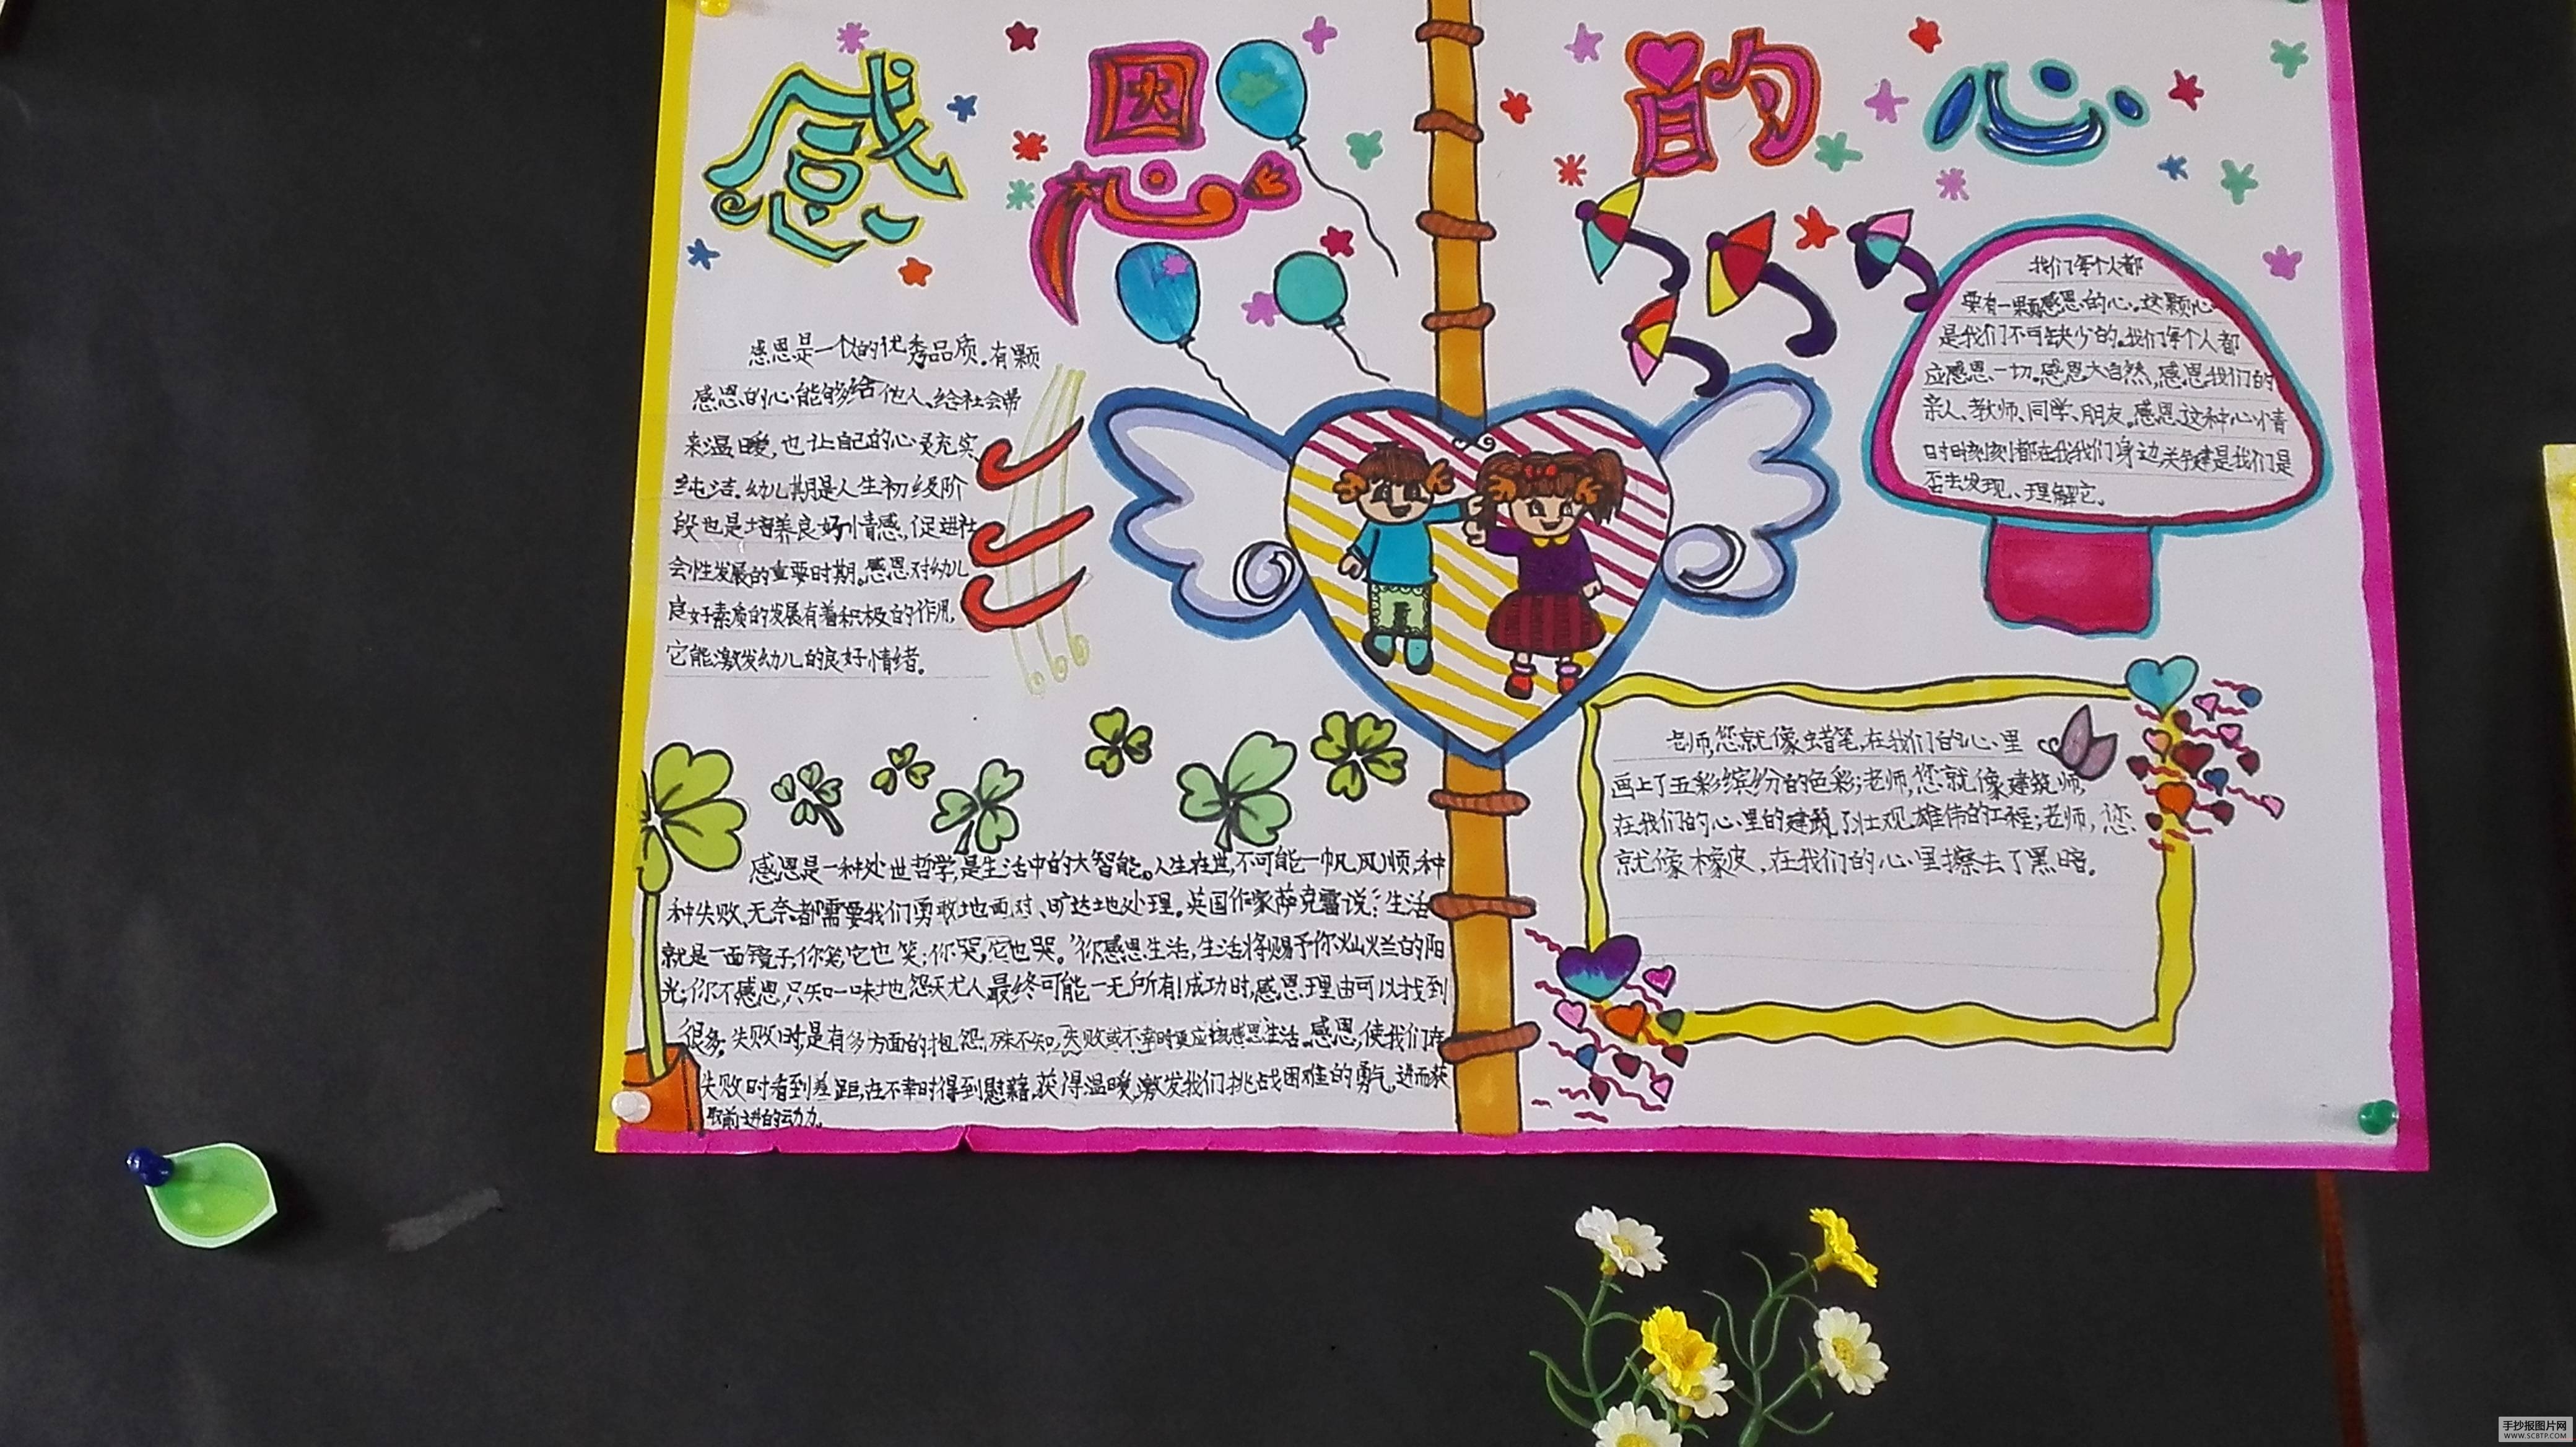 感恩的心
感恩是一个人的优秀品质。有颗
感恩的心能够给他人、给社会带
来温暖,也让自己的心灵充实、
纯洁。幼儿期是人生初级阶
段也是培养良好情感,促进社
会性发展的重要时期。感恩对幼儿
良好素质的发展有着积极的作用,
它能激发幼儿的良好情绪。
我们每个人都
要有一颗感恩的心。这颗心
是我们不可缺少的。我们每个人都
应感恩一切。感恩大自然,感恩我们的
亲人、教师、同学、朋友。感恩这种心情
时时刻刻都在我我们身边,关键是我们是
否去发现、理解它。
感恩是一种处世哲学,是生活中的大智能。人生在世,不可能一帆风顺,种
种失败、无奈都需要我们勇敢地面对、旷达地处理。英国作家萨克雷说:“生活
就是一面镜子,你笑,它也笑;你哭,它也哭。”你感恩生活,生活将赐予你灿烂的阳
光;你不感恩,只知一味地怨天尤人,最终可能一无所有!成功时,感恩理由可以找到
很多;失败时,是有多方面的抱怨,殊不知,失败或不幸时更应该感恩生活。感恩,使我们在
失败时看到差距,在不幸时得到慰藉,获得温暖,激发我们挑战困难的勇气,进而获
取前进的动力。
老师,您就像蜡笔,在我们的心里
画上了五彩缤纷的色彩;老师,您就像建筑师,
在我们的心里的建筑了壮观、雄伟的工程;老师,您
就像橡皮,在我们的心里擦去了黑暗。
手抄报图片网
WWW.SCBTP.COM